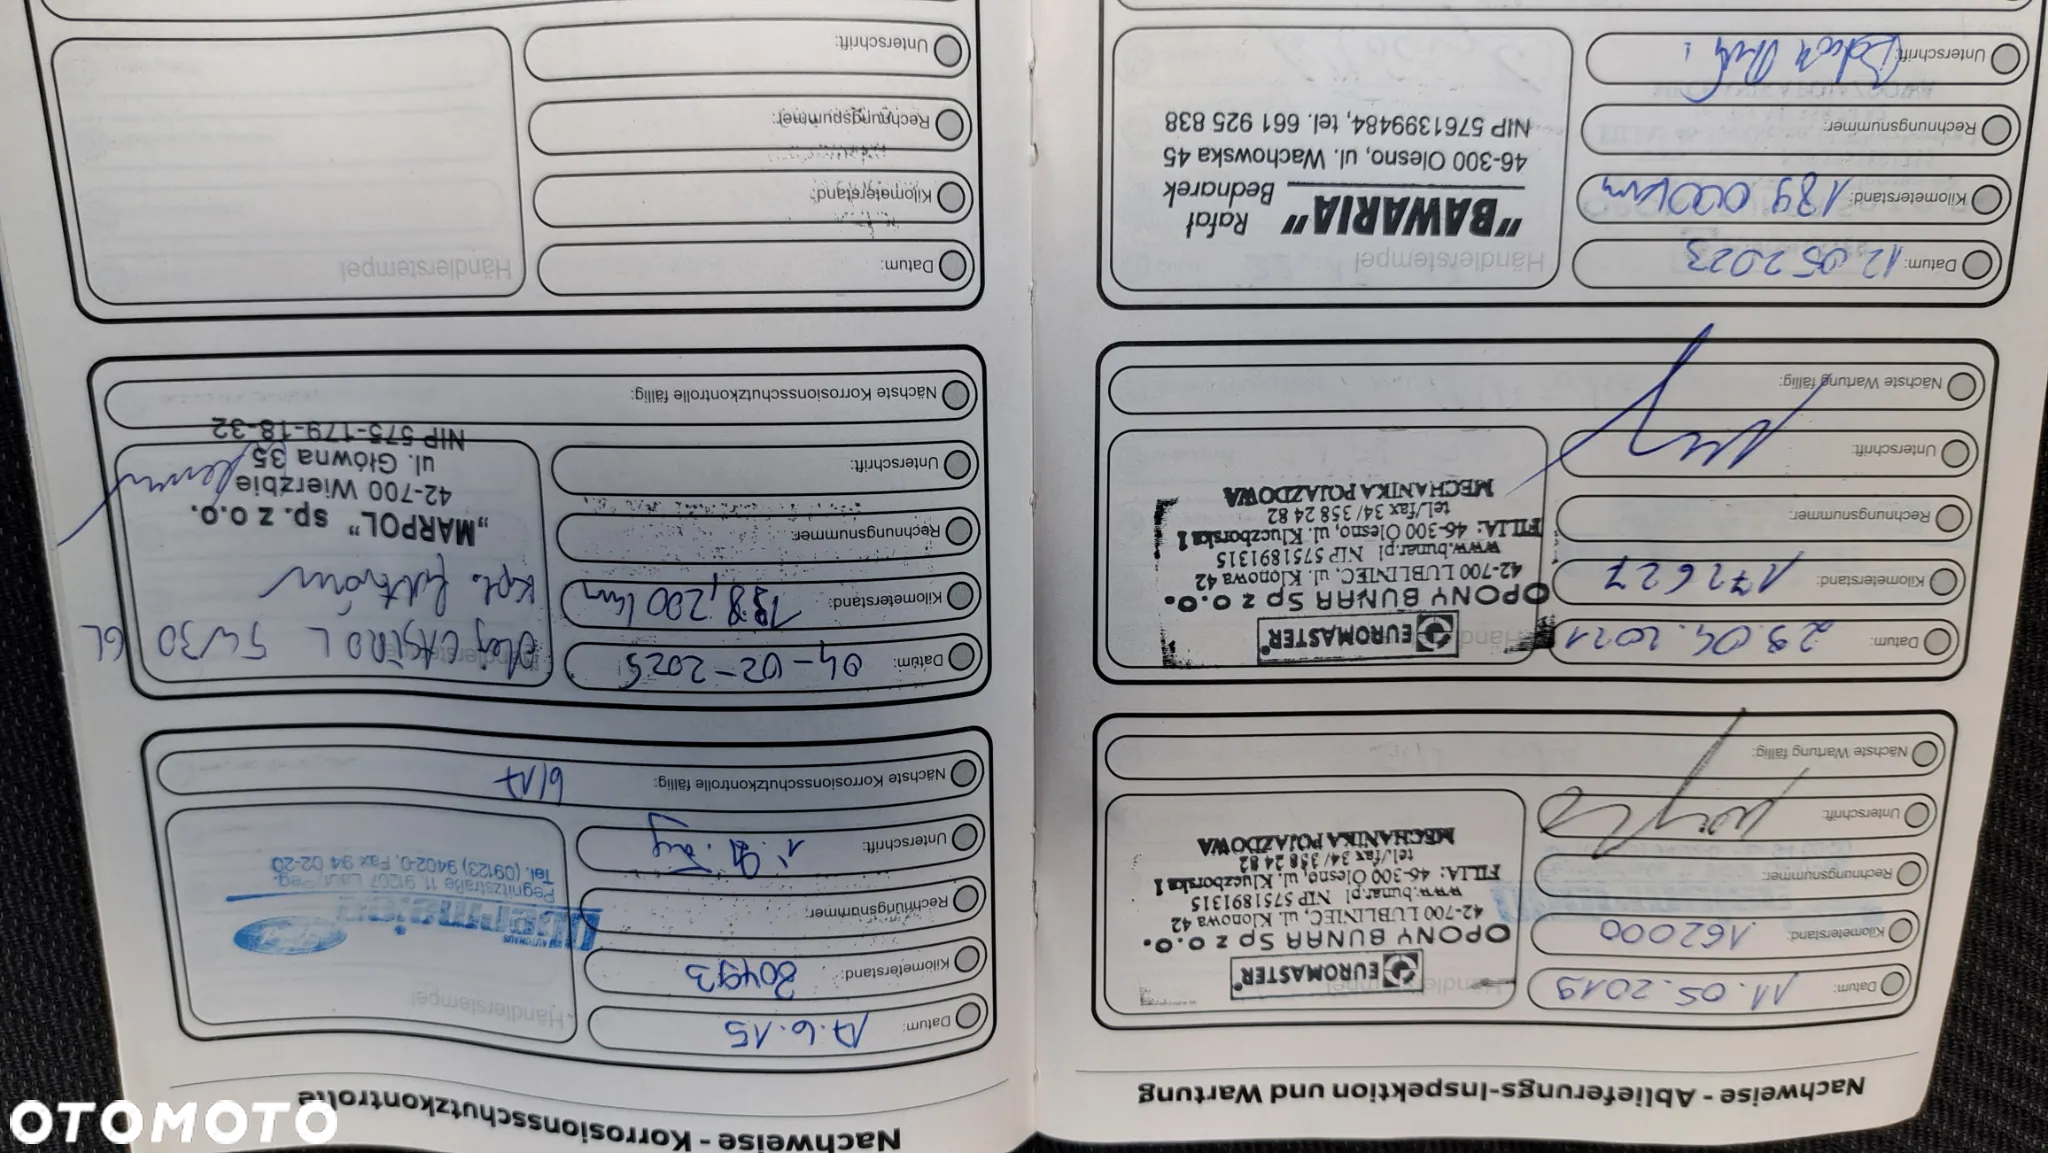 Nachweise - Ablieferungs-Inspektion und Wartung
Datum: 11.05.2019
Kilometerstand: 162000
Rechnungsnummer:
Unterschrift:
EUROMASTER
OPONY BUNAR Sp z o.o.
42-700 LUBLINIEC, ul. Klonowa 42
www.bunar.pl NIP 5751891315
FILIA: 46-300 Olesno, ul. Kluczborska 1
tel/fax 34/358 24 82
MECHANIKA POJAZDOWA
Nächste Wartung fällig:
Datum: 29.04.2021
Kilometerstand: 172627
Rechnungsnummer:
Unterschrift:
EUROMASTER
OPONY BUNAR Sp z o.o.
42-700 LUBLINIEC, ul. Klonowa 42
www.bunar.pl NIP 5751891315
FILIA: 46-300 Olesno, ul. Kluczborska 1
tel/fax 34/358 24 82
MECHANIKA POJAZDOWA
Nächste Wartung fällig:
Datum: 12.05.2023
Kilometerstand: 189 000km
Rechnungsnummer:
Unterschrift:
Händlerstempel
"BAWARIA" Rafał Bednarek
46-300 Olesno, ul. Wachowska 45
NIP 5761399484, tel. 661 925 838
Nachweise - Korrosionsschutzkontrolle
Datum: 17.6.15
Kilometerstand: 80493
Rechnungsnummer:
Unterschrift:
Händlerstempel
Ford
Pegnitzstraße 11 91207 Lauf/Peg.
Tel. (09123) 9402-0, Fax 94 02-20
Nächste Korrosionsschutzkontrolle fällig: 6/17
Datum: 04-02-2025
Kilometerstand: 198,200 km
Rechnungsnummer:
Unterschrift:
Olej CASTROL 5W30 6L
Kpl. filtrów
„MARPOL” sp. z o.o.
42-700 Wierzbie
ul. Główna 35
NIP 575-179-18-32
Nächste Korrosionsschutzkontrolle fällig:
Datum:
Kilometerstand:
Rechnungsnummer:
Unterschrift:
Händlerstempel
OTOMOTO